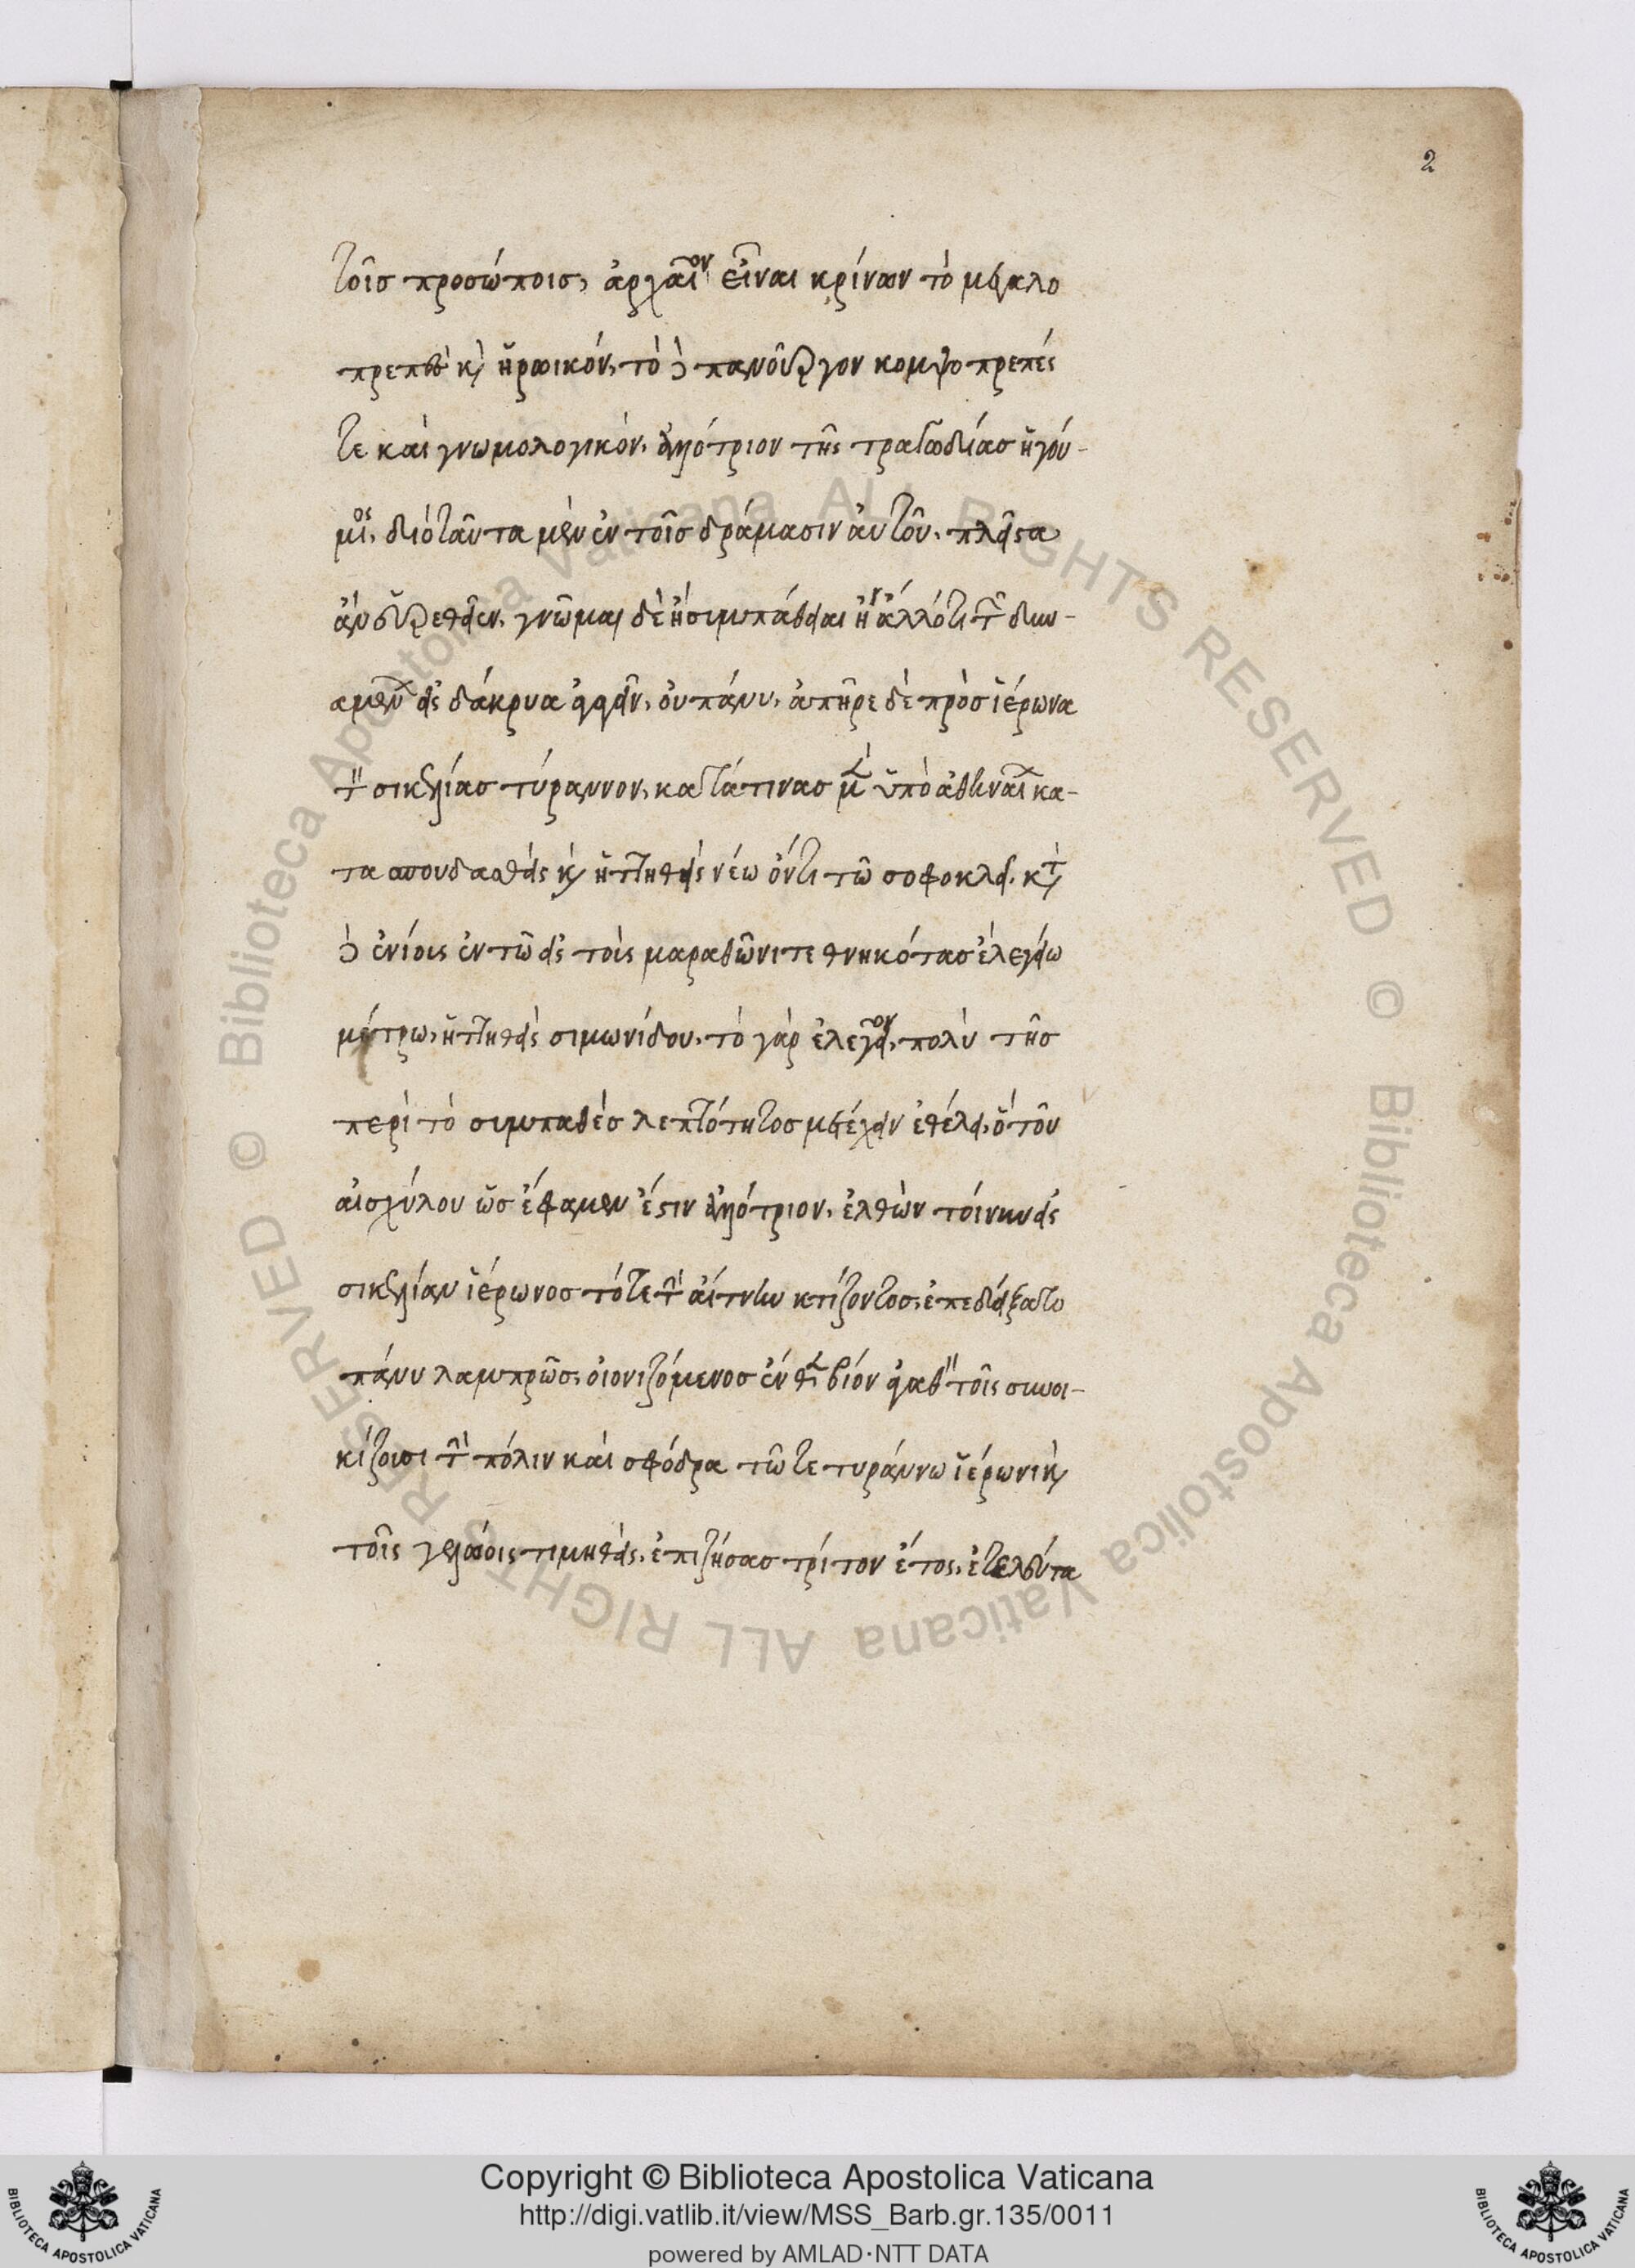 2
τοῖσ προσώποισ, ἀρχαῖον εἶναι κρίνων τὸ μεγαλο
πρεπὲς κὶ ἡρωικόν, τὸ δὲ πανοῦργον κομψοπρεπές
τε καὶ γνωμολογικὸν, ἀλλότριον τῆς τραγωδίασ ἡγού-
μενος. διὸ ταῦτα μὲν ἐν τοῖσ δράμασιν ἀυτοῦ, πλεῖστα
ἀν εὑρεθεῖεν, γνῶμαι δὲ ἢ συμπάθειαι ἢ ἄλλό τι τῶν δυν-
αμένων εἰς δάκρυα ἀγαγεῖν, ὀυ πάνυ. ἀπῆρε δὲ πρὸσ ἱέρωνα
τὸν σικελίασ τύραννον, κατά τινασ μὲν ὑπὸ ἀθηναίων κα-
τασπουδασθεὶς κὶ ἡττηθεὶς νέω ὄντι τῶ σοφοκλεῖ. κατὰ
δὲ ἐνίοις ἐν τῶ εἰς τοὺς μαραθῶνι τεθνηκότασ ἐλεγείω
μέτρω, ἡττηθεὶς σιμωνίδου. τὸ γὰρ ἐλεγεῖον, πολὺ τῆσ
περὶ τὸ συμπαθὲσ λεπτότητοσ μετέχειν ἐθέλει, ὃ τοῦ
ἀισχύλου ὡσ ἔφαμεν ἐστιν ἀλλότριον. ἐλθὼν τοίνυν εἰς
σικελίαν ἱέρωνοσ τότε τὴν ἀίτνην κτίζοντοσ, ἐπεδείξατο
πάνυ λαμπρῶσ, ὀιονιζόμενοσ ἐντεῦθεν βίον ἀγαθὸν τοῖς συνοι-
κίζουσι τὴν πόλιν καὶ σφόδρα τῶ τε τυράννω ἱέρωνι κὶ
τοῖς γελώοις τιμηθεὶς, ἐπιζήσασ τρίτον ἔτος, ἐτελεύτα